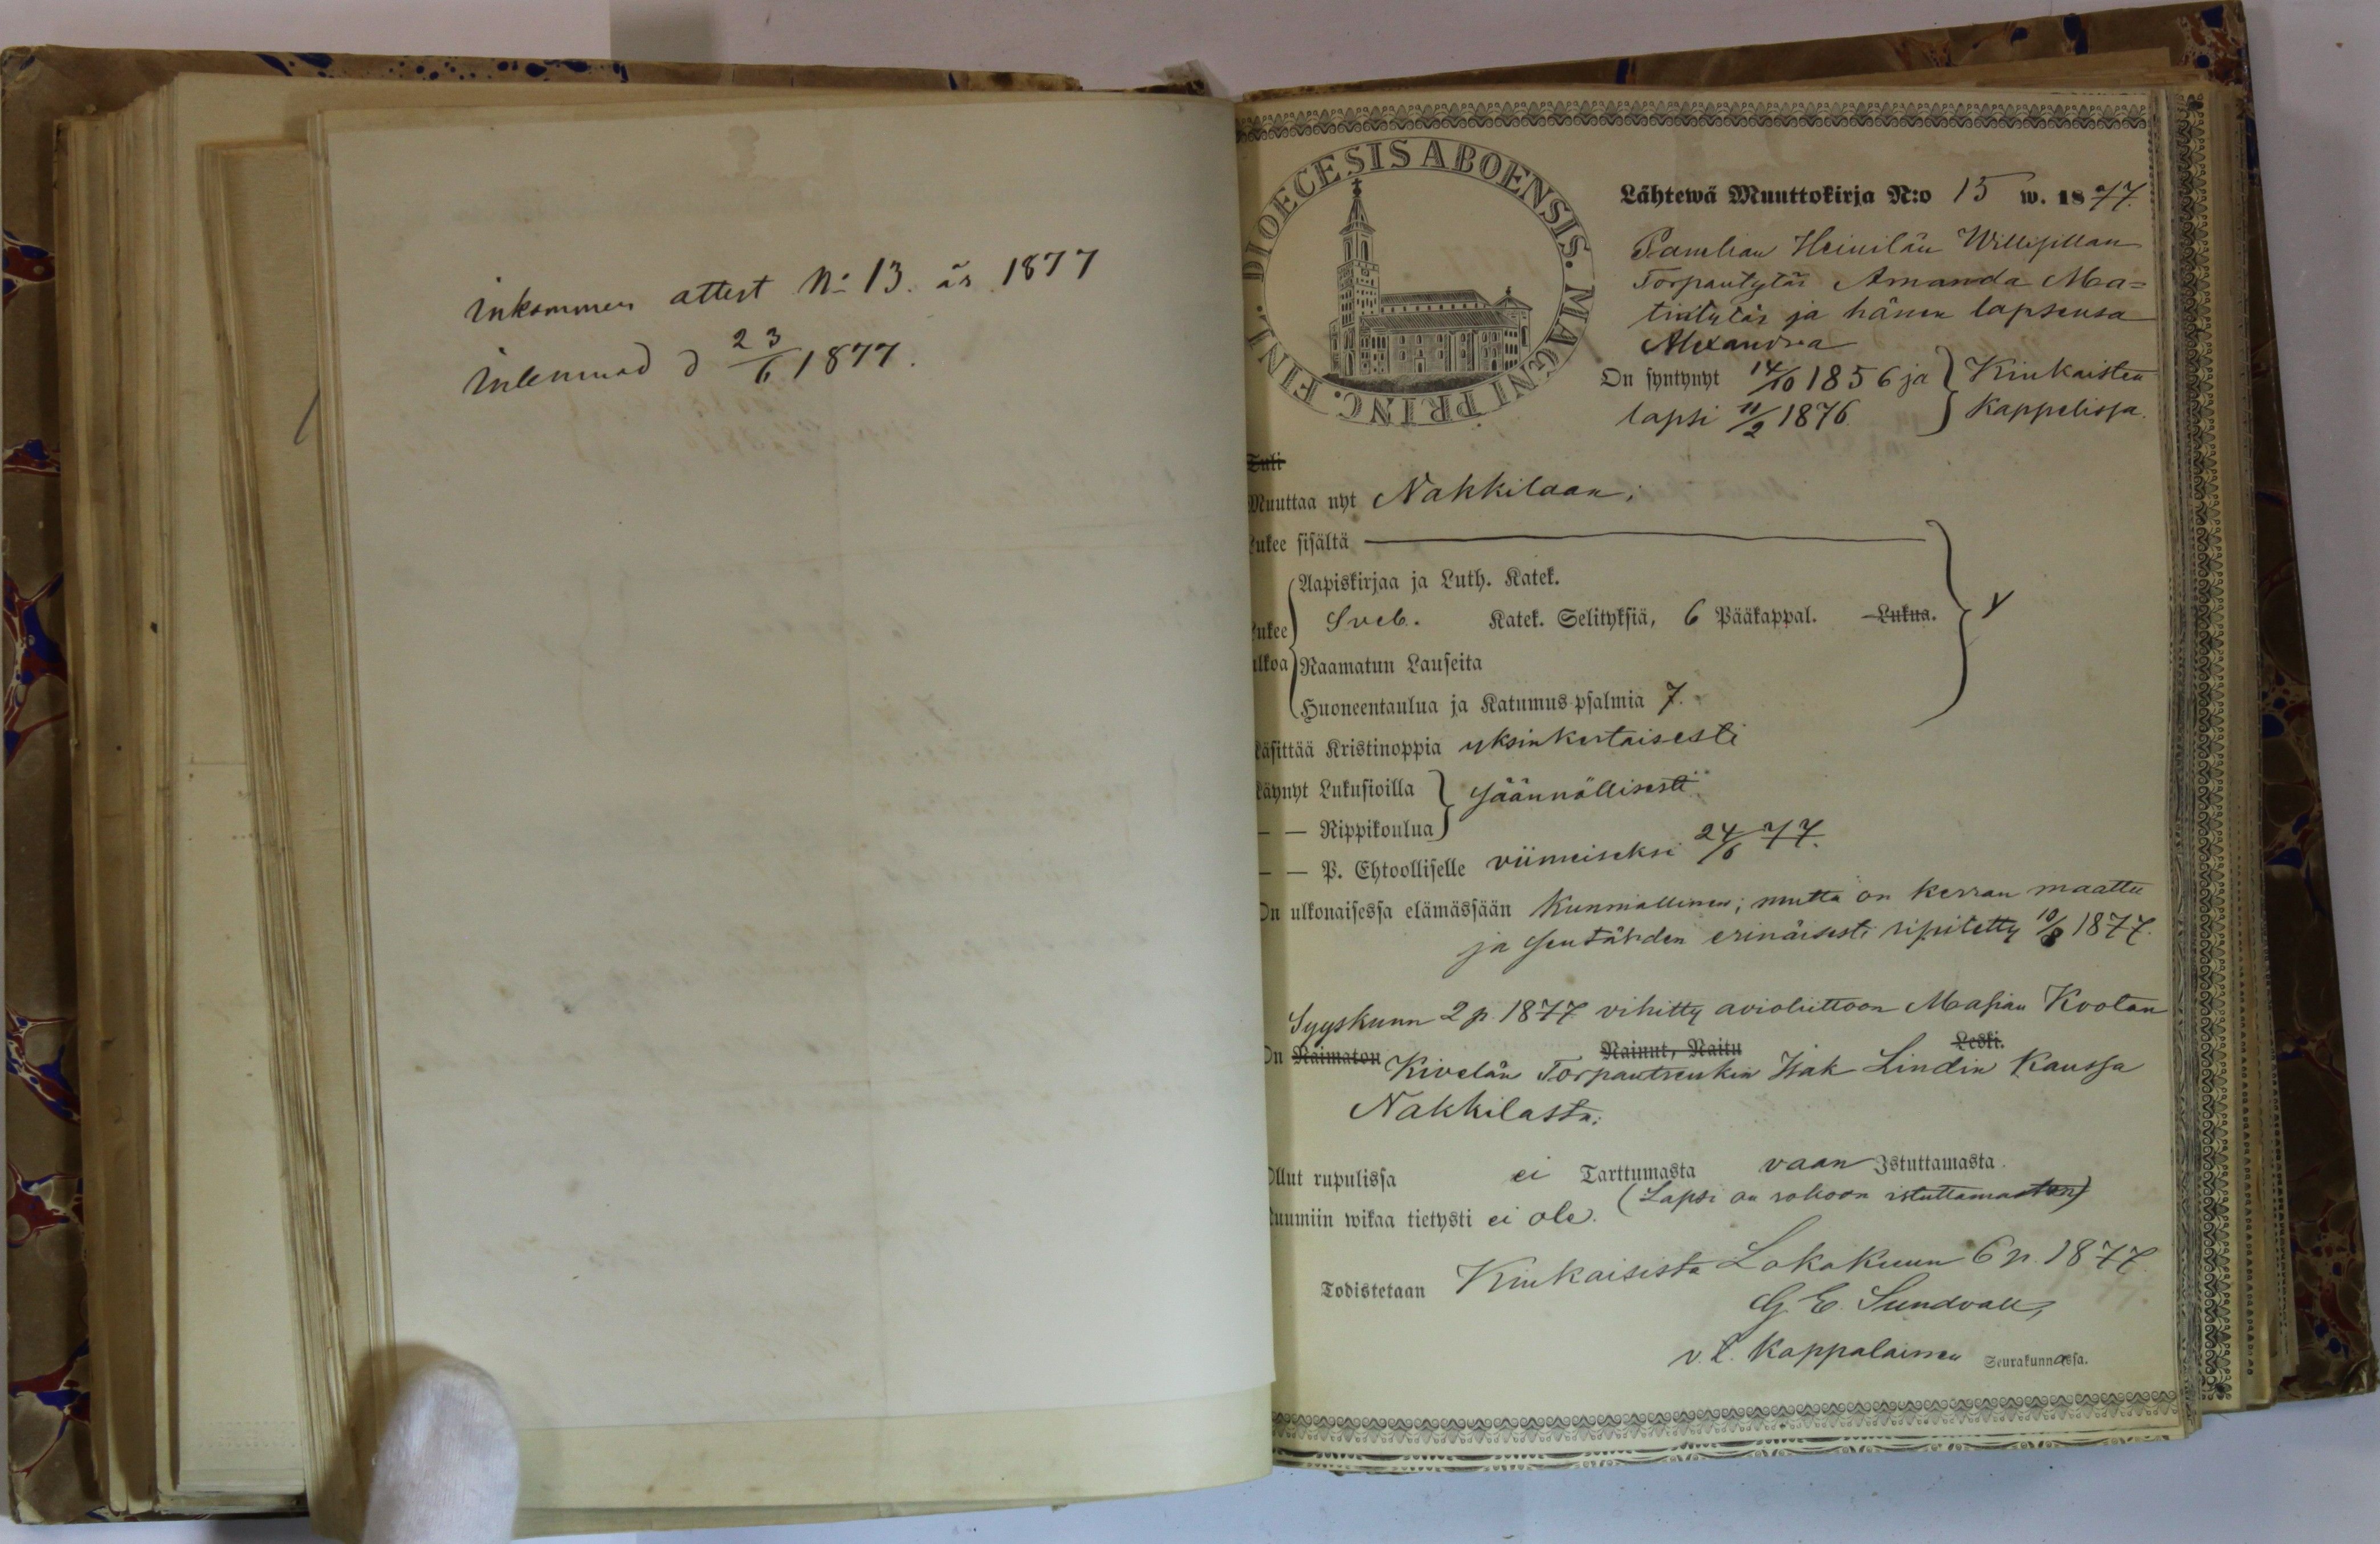 inkommen attest No 13. år 1877
inlemnad d 23/6 1877.
DIOECESIS ABOENSIS. MAGNI PRINC. FINL.
Lähtewä Muuttokirja N:o 15 w. 1877.
Panelian Heinilän
Torpantytär Amanda Ma=
tintytär ja hänen lapsensa
Alexandra
On syntynyt 14/10 1856 ja } Kiukaisten
lapsi 11/2 1876. Kappelissa.
Tuli
Muuttaa nyt Nakkilaan;
Lukee sisältä
Aapiskirjaa ja Luth. Katek.
Lukee Sveb. Katek. Selityksiä, 6 Pääkappal. Lukua.
ulkoa Raamatun Lauseita
Huoneentaulua ja Katumus-psalmia 7.
Käsittää Kristinoppia yksinkertaisesti
Käynyt Lukusioilla } säännöllisesti
— — Rippikoulua
— — P. Ehtoolliselle viimeiseksi 24/6 77.
On ulkonaisessa elämässään Kunniallinen; mutta on kerran maattu
ja sentähden erinäisesti ripitetty 10/8 1877.
Syyskuun 2 p. 1877 vihitty avioliittoon Masian Koolan
On Naimaton Nainut, Naitu Leski.
Kivelän Torpantrenkin Isak Lindin Kanssa
Nakkilasta.
Ollut rupulissa ei Tarttumasta vaan Istuttamasta.
(Lapsi on rokoon istuttamaton)
Ruumiin wikaa tietysti ei ole.
Todistetaan Kiukaisista Lokakuun 6 p. 1877.
G. E. Sundvall,
v. t. Kappalainen Seurakunnassa.